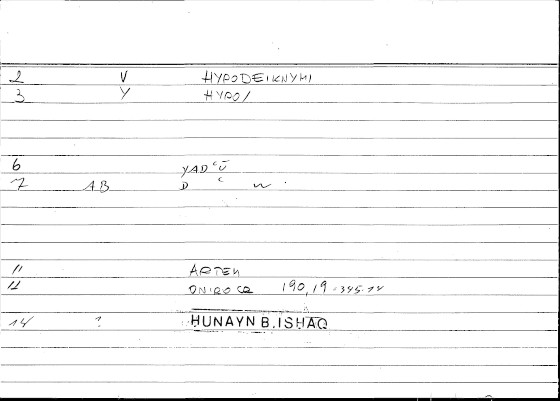 2 V HYPODEIKNYMI
3 Y HYPO/
6 YADʿŪ
7 AB D ʿ W
11 ARTEM
12 ONIROCR 190,19=345.14
14 ? HUNAYN B.ISHAQ